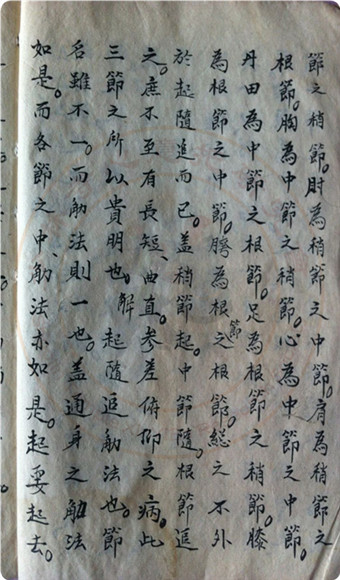 節之梢節。肘為梢節之中節。肩為梢節之
根節。胸為中節之梢節。心為中節之中節。
丹田為中節之根節。足為根節之梢節。膝
為根節之中節。胯為根節之根節。總之不外
於起隨追而已。盖梢節起。中節隨。根節追
之。庶不至有長短、曲直。參差俯仰之病。此
三節之所以貴明也。解 起隨追觔法也。節
名雖不一。而觔法則一也。盖通身之觔法
如是。而各節之中、觔法亦如是。起要起去。